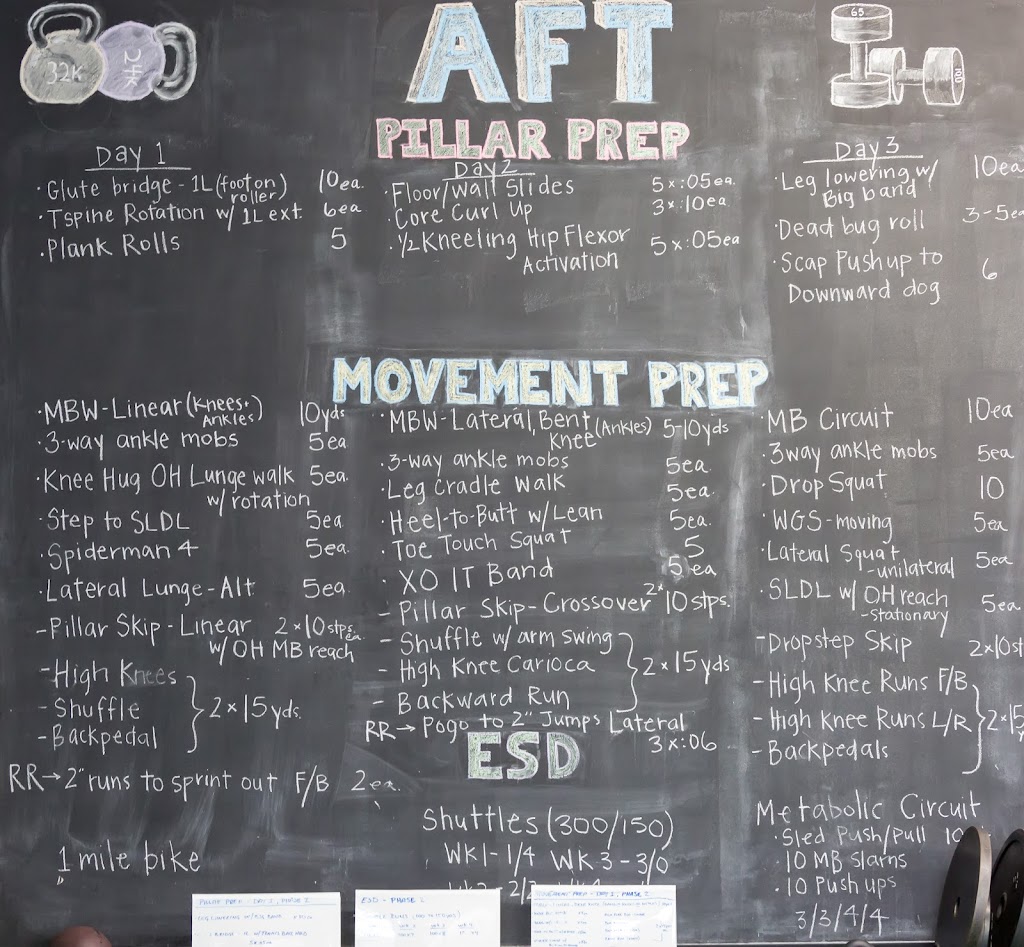 32K
24K
AFT
65
100
PILLAR PREP
Day 1
· Glute bridge - 1L (foot on roller) 10ea.
· Tspine Rotation w/ 1L ext. 6ea
· Plank Rolls 5
Day 2
· Floor/Wall Slides 5x:05ea.
· Core Curl Up 3x:10ea
· 1/2 Kneeling Hip Flexor 5x:05ea
Activation
Day 3
· Leg lowering w/ 10ea
Big band
· Dead bug roll 3-5ea
· Scap Pushup to 6
Downward dog
MOVEMENT PREP
· MBW-Linear (Knees + Ankles) 10yds
· 3-way ankle mobs 5ea
· Knee Hug OH Lunge walk 5ea.
w/ rotation
· Step to SLDL 5ea
· Spiderman 4 5ea.
· Lateral Lunge-Alt 5ea
- Pillar Skip-Linear 2x10stps. ea
w/ OH MB reach
- High Knees
- Shuffle 2x15yds.
- Backpedal
RR→ 2" runs to sprint out F/B 2ea.
1 mile bike
· MBW-Lateral, Bent Knee (Ankles) 5-10yds
· 3-way ankle mobs 5ea.
· Leg Cradle Walk 5ea.
· Heel-to-Butt w/ Lean 5ea.
· Toe Touch Squat 5
· XO IT Band 5ea
- Pillar Skip-Crossover 2x10stps.
- Shuffle w/ arm swing
- High Knee Carioca 2x15yds
- Backward Run
RR→ Pogo to 2" Jumps Lateral
3x:06
ESD
Shuttles (300/150)
WK1-1/4 WK3-3/0
2/2
· MB Circuit 10ea
· 3way ankle mobs 5ea
· Drop Squat 10
· WGS-moving 5ea
· Lateral Squat 5ea
-unilateral
· SLDL w/ OH reach 5ea
-stationary
- Dropstep Skip 2x10st
- High Knee Runs F/B
- High Knee Runs L/R 2x15
- Backpedals
Metabolic Circuit
· Sled Push/pull 10
· 10 MB slams
· 10 Push ups
3/3/4/4
PILLAR PREP - DAY 1, PHASE 2
ESD - PHASE 2
MOVEMENT PREP - DAY 1, PHASE 2